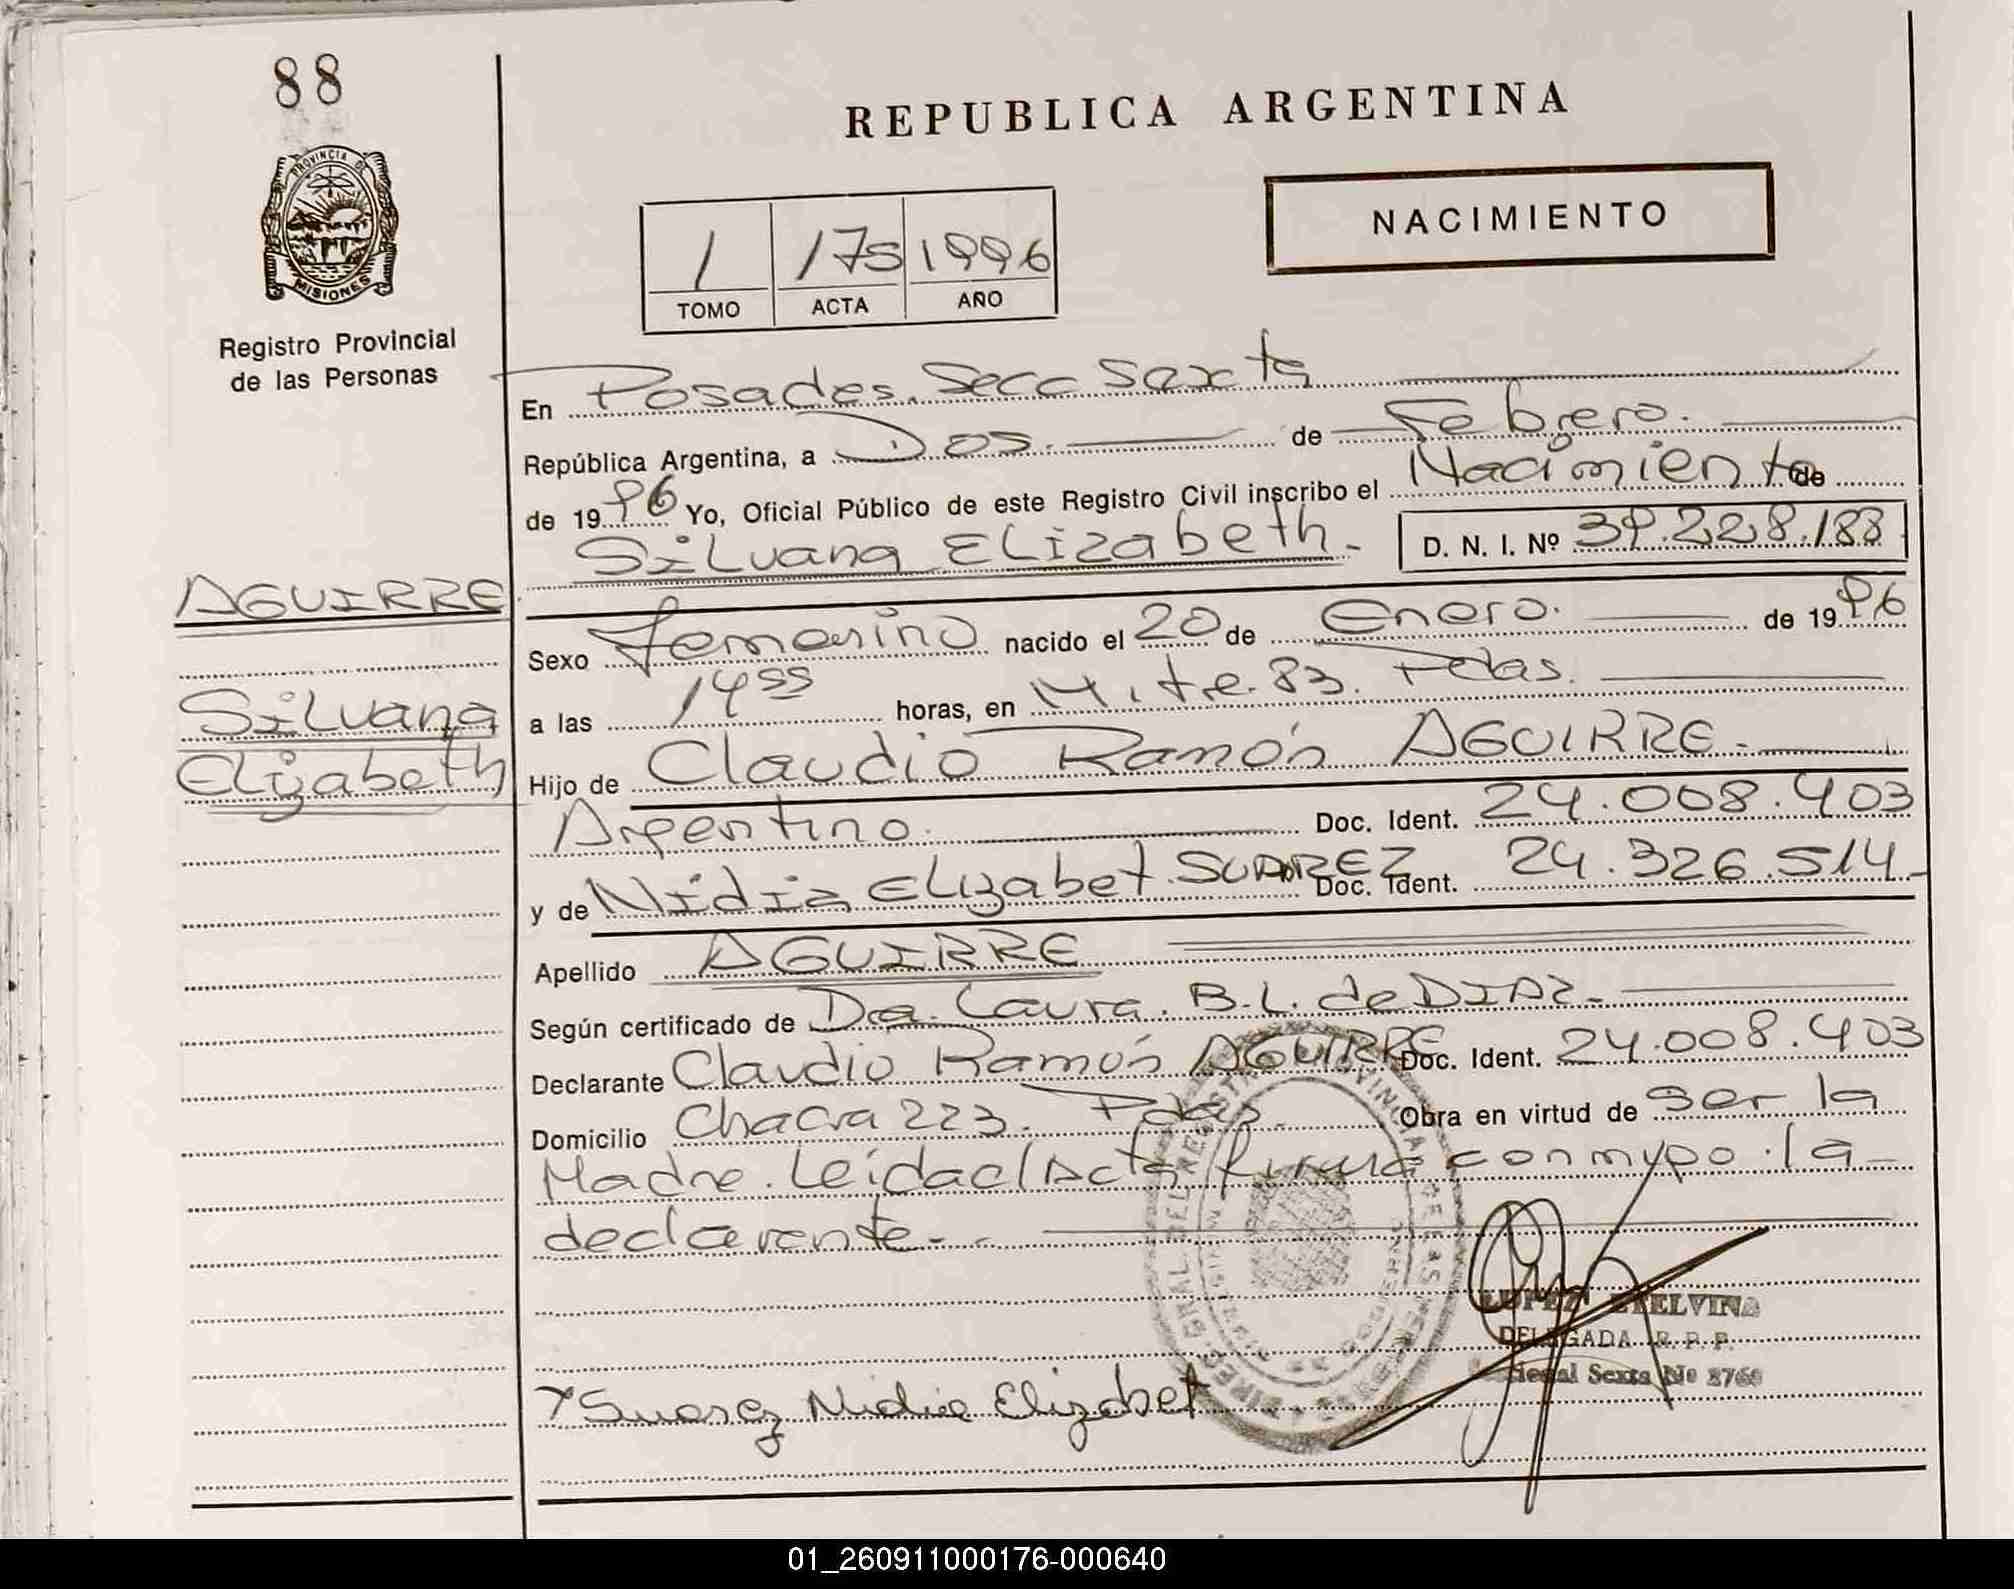 88
PROVINCIA DE
MISIONES
Registro Provincial
de las Personas
AGUIRRE
Silvana
Elizabeth
REPUBLICA ARGENTINA
NACIMIENTO
1 175 1996
TOMO ACTA AÑO
En Posadas. Secc Sexta
República Argentina, a Dos. de Febrero.
de 1996 Yo, Oficial Público de este Registro Civil inscribo el Nacimiento de
Silvana Elizabeth. D. N. I. Nº 39.228.188
Sexo femenino nacido el 20 de Enero. de 1996
a las 14 55 horas, en Mitre. 83. Pdas.
Hijo de Claudio Ramón AGUIRRE.
Argentino. Doc. Ident. 24.008.403
y de Nidia Elizabet. SUAREZ Doc. Ident. 24.326.514
Apellido AGUIRRE
Según certificado de Dra. Laura. B.L. de DIAZ
Declarante Claudio Ramón AGUIRRE Doc. Ident. 24.008.403
Domicilio Chacra 223. Pdas. Obra en virtud de ser la
Madre. Leida el Acta firma conmygo. la
declarante.
LOPEZ ETELVINA
DELEGADA R. P. P.
Sexta No 2760
Suarez Nidia Elizabet
01_260911000176-000640